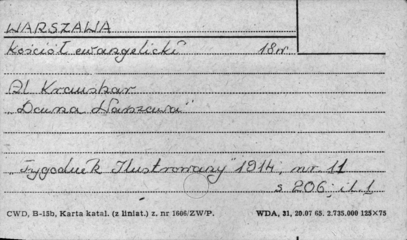 WARSZAWA
Kościół ewangelicki 18w
Al Kraushar
"Dawna Warszawa"
"Tygodnik Ilustrowany" 1914, nr. 11
s 206, il. 1
CWD, B-15b, Karta katal. (z liniat.) z. nr 1606/ZW/P. WDA, 31, 20.07 65. 2.735.000 125×75